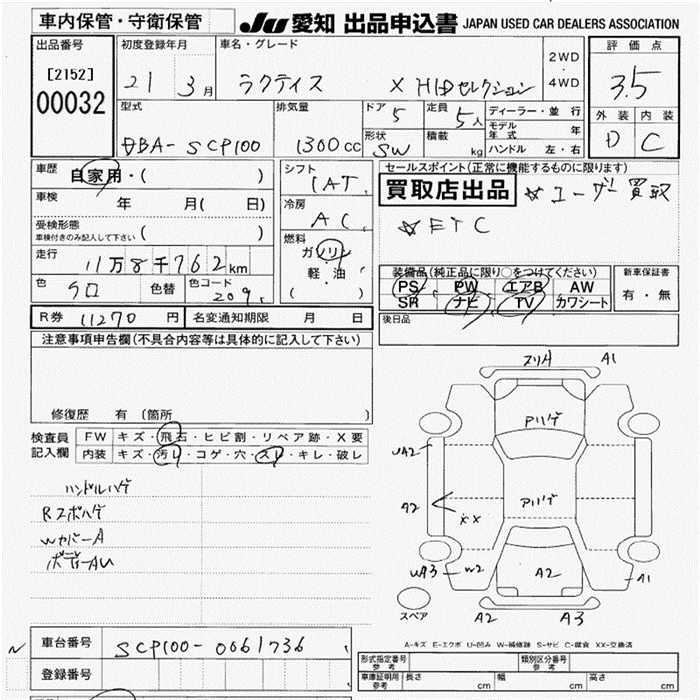 車内保管・守衛保管
JU 愛知 出品申込書 JAPAN USED CAR DEALERS ASSOCIATION
出品番号
[2152]
00032
初度登録年月
21 3月
車名・グレード
ラクティス X HIDセレクション
2WD
・
4WD
評価点
3.5
外装 内装
D C
型式
DBA-SCP100
排気量
1300cc
ドア 5
定員 5人
形状 SW
積載 kg
ディーラー・並行
モデル年式 年
ハンドル 左・右
車歴
自家用・( )
車検
年 月( 日)
受検形態
車検付きのみ記入して下さい ( )
走行
11万8千762km
色 クロ 色替 色コード 209
シフト
IAT
冷房
AC
燃料
ガソリン
軽・油
( )
セールスポイント(正常に機能するものに限ります)
買取店出品 ☆ユーザー買取
☆ETC
装備品(純正品に限り○をつけてください)
PS PW エアB AW
SR ナビ TV カワシート
新車保証書
有・無
R券 11270円 名変通知期限 月 日
後日品
注意事項申告欄(不具合内容等は具体的に記入して下さい)
修復歴 有 〔箇所
検査員
記入欄
FW キズ・飛石・ヒビ割・リペア跡・X要
内装 キズ・汚レ・コゲ・穴・スレ・キレ・破レ
ハンドルハゲ
Rスポハゲ
WカバーA
ボディーAU
スリA A1
Aハゲ
UA2
Aハゲ
A2
XX
UA3 W2
A2
A1
スペア
A2 A3
A-キズ E-エクボ U-凹み W-補修跡 S-サビ C-腐食 XX-交換済
車台番号 SCP100-0061736
登録番号
形式指定番号
参考
類別区分番号
参考
車庫証明用
参考
長さ cm 幅 cm 高さ cm